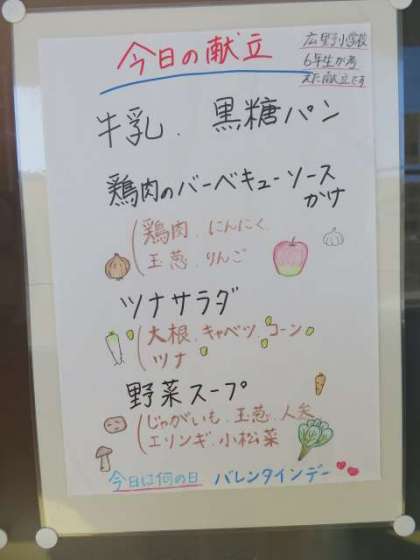 今日の献立
広野小学校
6年生が考
えた献立です
牛乳、黒糖パン
鶏肉のバーベキューソース
かけ
鶏肉、にんにく、
玉葱、りんご
ツナサラダ
大根、キャベツ、コーン
ツナ
野菜スープ
じゃがいも、玉葱、人参
エリンギ、小松菜
今日は何の日 バレンタインデー